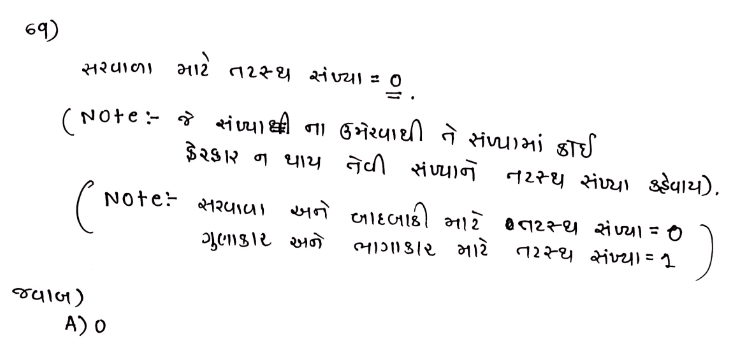 69)
સરવાળા માટે તટસ્થ સંખ્યા = 0.
(Note:- જે સંખ્યા ના ઉમેરવાથી તે સંખ્યામાં કોઈ
ફેરફાર ન થાય તેવી સંખ્યાને તટસ્થ સંખ્યા કહેવાય).
(Note:- સરવાળા અને બાદબાકી માટે તટસ્થ સંખ્યા = 0
ગુણાકાર અને ભાગાકાર માટે તટસ્થ સંખ્યા = 1)
જવાબ)
A) 0